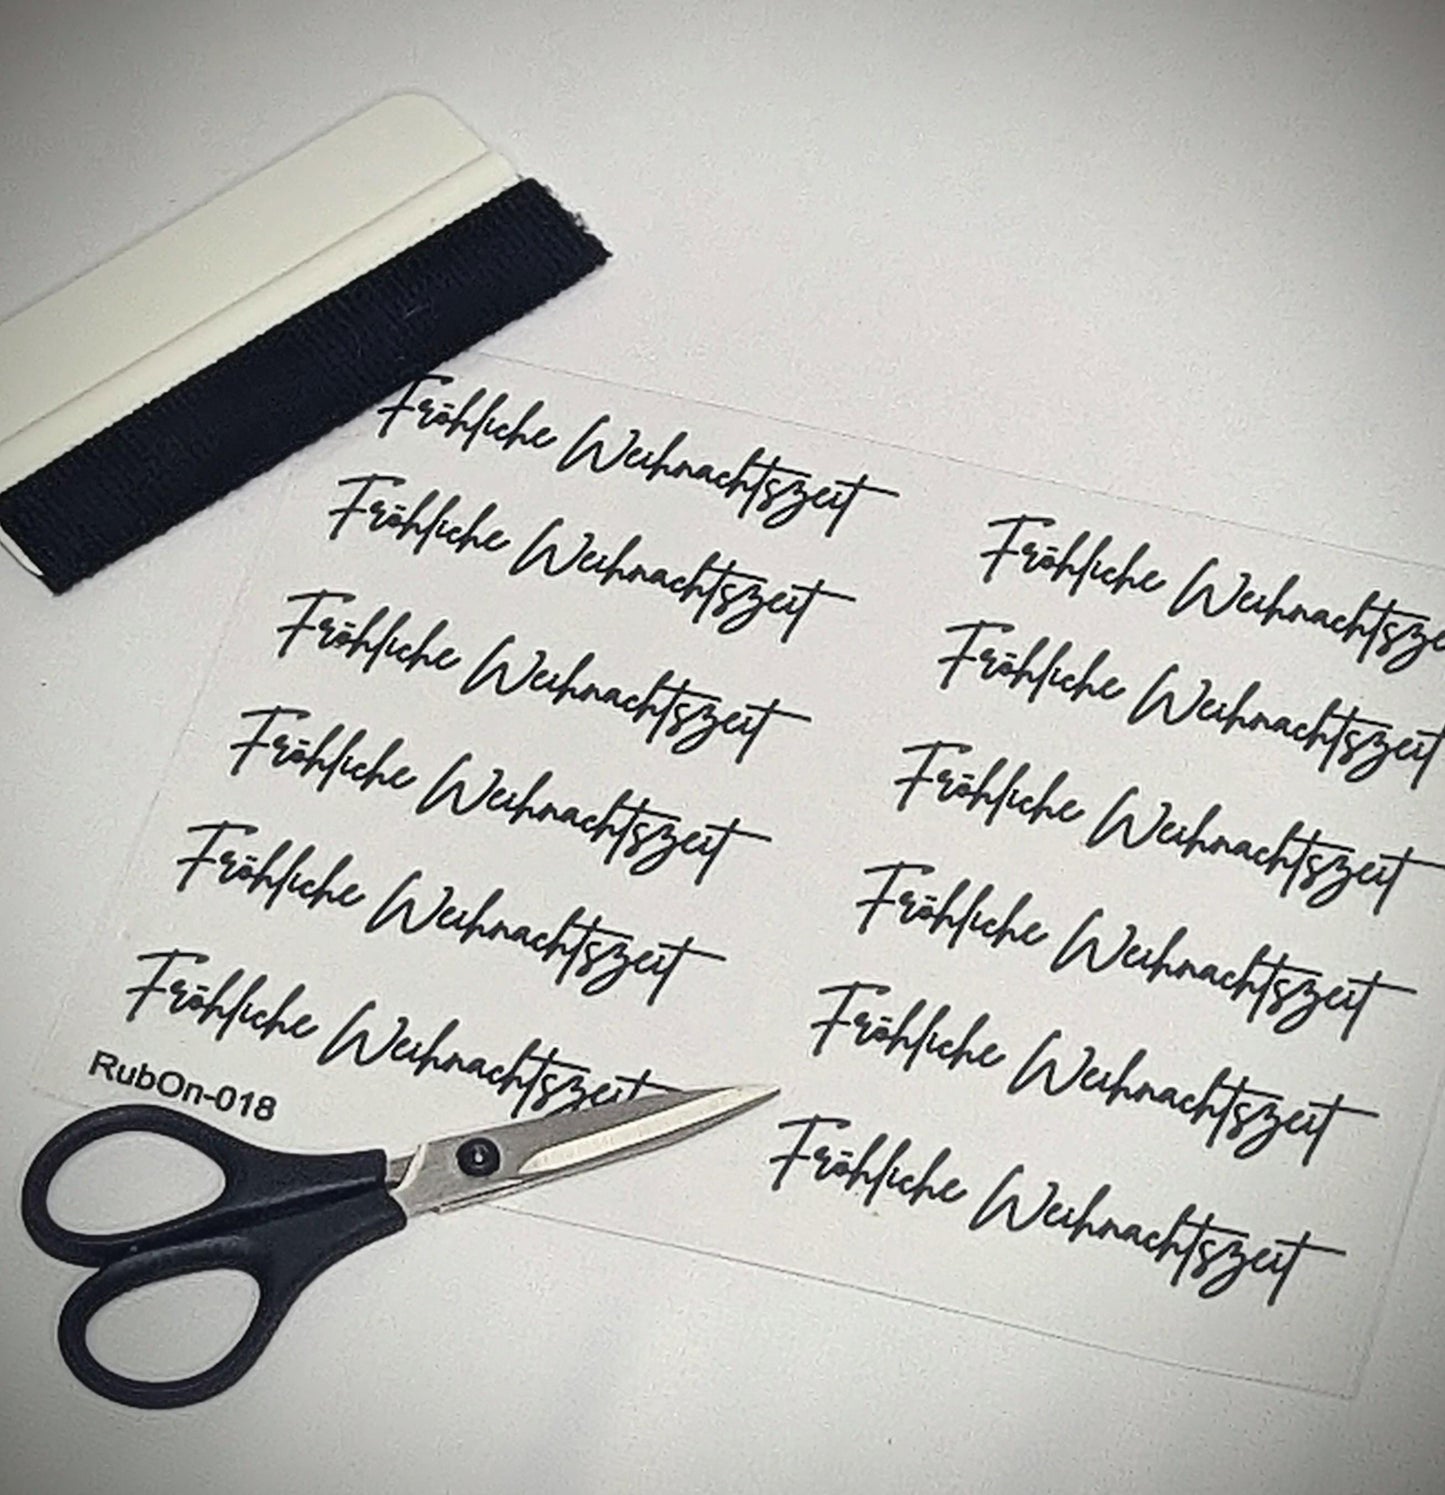 Fröhliche Weihnachtszeit
Fröhliche Weihnachtszeit
Fröhliche Weihnachtszeit
Fröhliche Weihnachtszeit
Fröhliche Weihnachtszeit
Fröhliche Weihnachtszeit
RubOn-018
Fröhliche Weihnachtsze
Fröhliche Weihnachtszeit
Fröhliche Weihnachtszeit
Fröhliche Weihnachtszeit
Fröhliche Weihnachtszeit
Fröhliche Weihnachtszeit